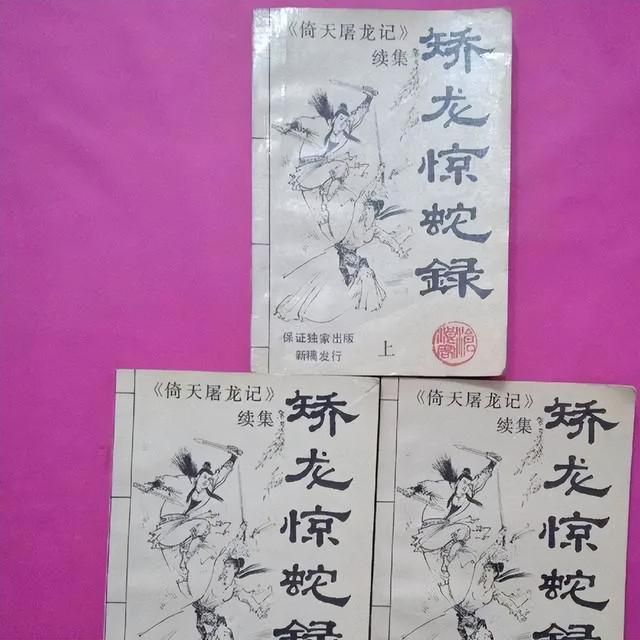 《倚天屠龙记》
续集
矫龙惊蛇録
保证独家出版
新穗发行
上
《倚天屠龙记》
续集
矫龙惊蛇録
《倚天屠龙记》
续集
矫龙惊蛇録